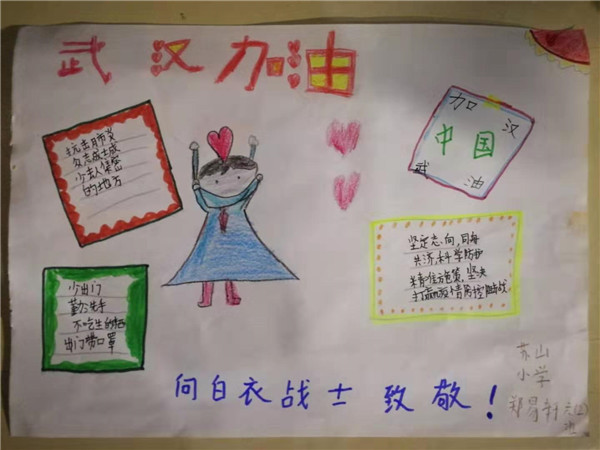 武汉加油
抗击肺炎
众志成城
少去人
的地方
加 汉
中国
武 油
坚定志向,同
共济,科学防护
精准施策,坚决
打赢疫情防控战
少出门
勤洗手
不吃生的
出门带口罩
向白衣战士致敬!
苏山
小学
郑易
班